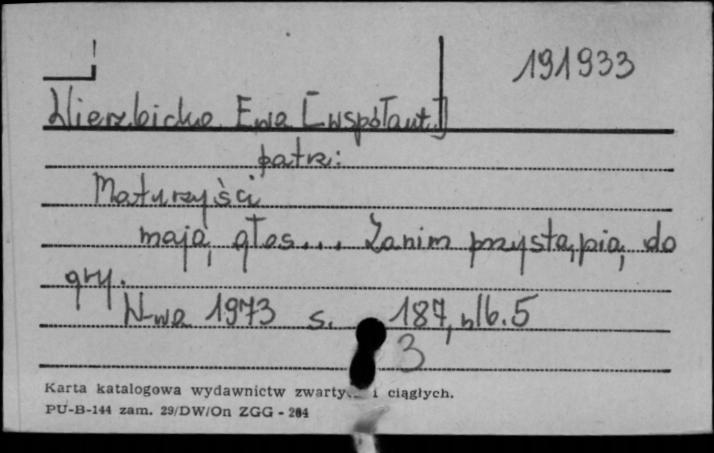 191933
Wierzbicka Ewa [współaut.]
patrz:
Maturzyści
mają głos... Zanim przystąpią do
gry.
W-wa 1973 s. 187, nlb. 5
3
Karta katalogowa wydawnictw zwarty i ciągłych.
PU-B-144 zam. 29/DW/On ZGG - 264